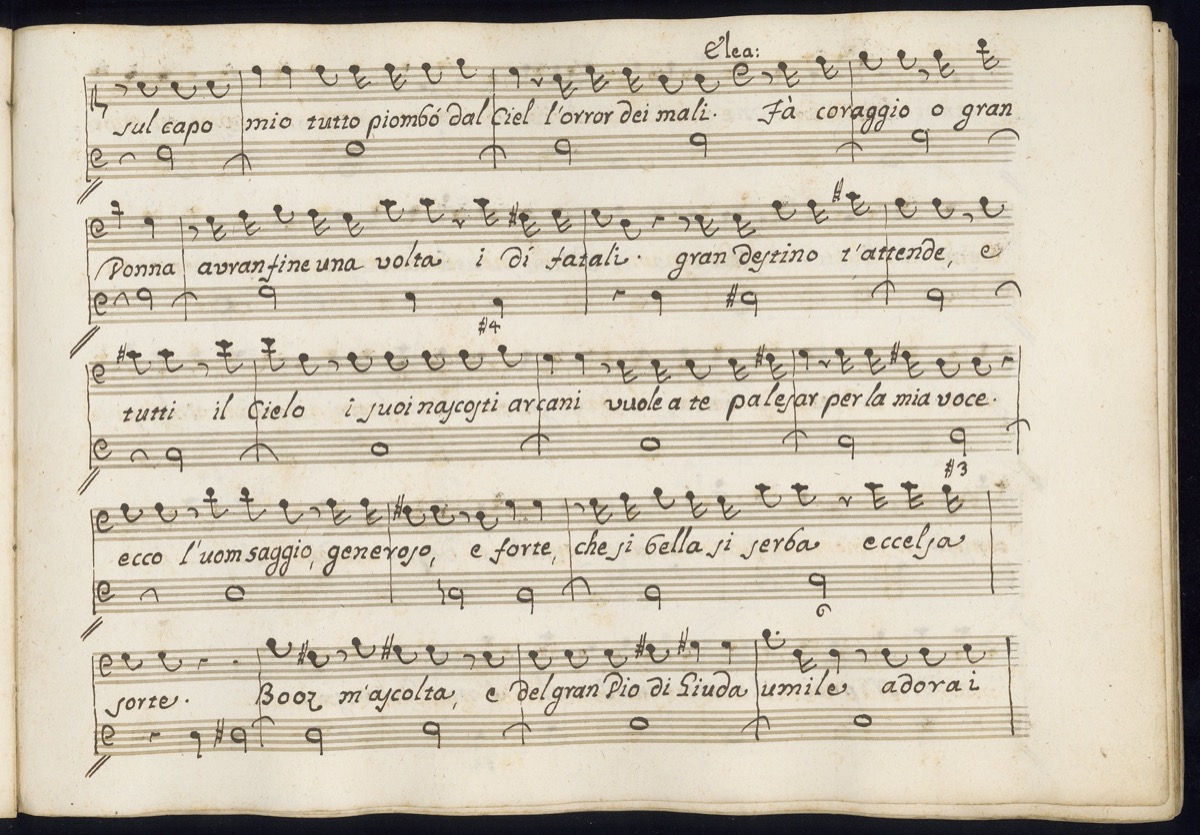 Elea:
sul capo mio tutto piombó dal Ciel l'orror dei mali. Fà coraggio o gran
Donna avran fine una volta i dì fatali. gran destino t'attende, e
#4
tutti il Cielo i suoi nascosti arcani vuole a te palesar per la mia voce.
#3
ecco l'uom saggio, generoso, e forte, che si bella si serba eccelsa
6
sorte. Booz m'ascolta, e del gran Dio di Giuda umile adora i